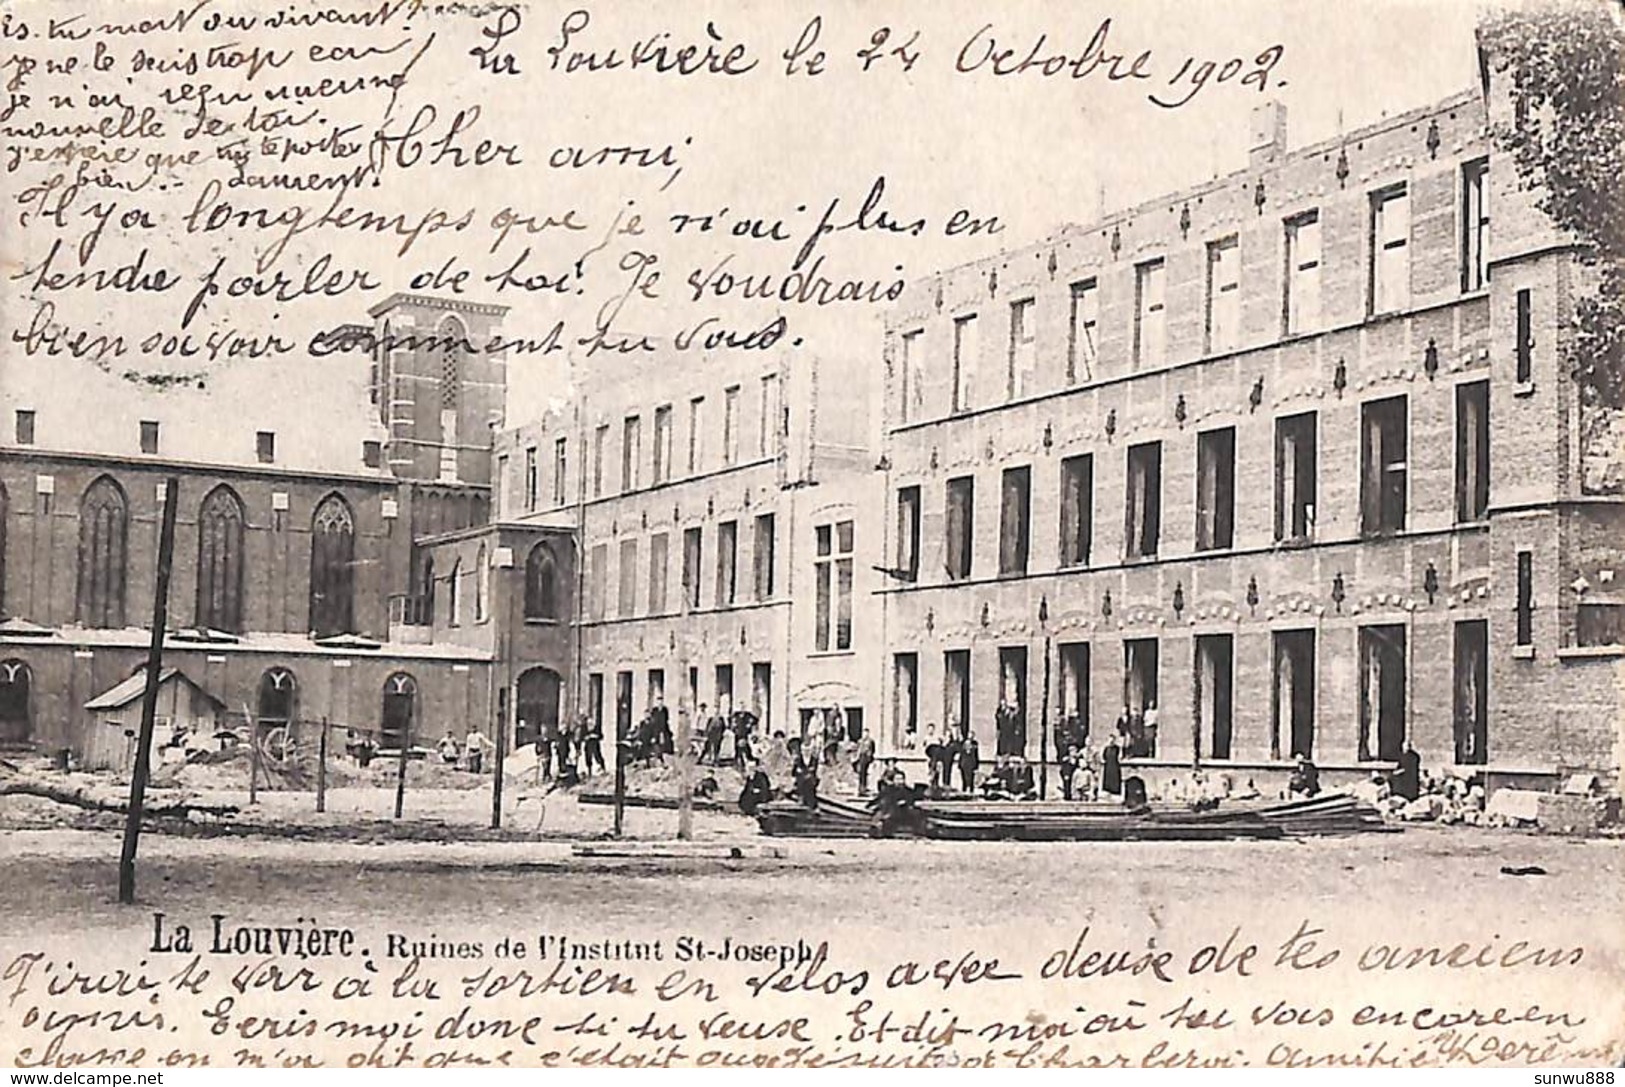 Es-tu mort ou vivant?
je ne le sais trop car
je n'ai reçu aucune
nouvelle de toi.
J'espère que tu te portes
bien.- Laurent.
La Louvière le 24 Octobre 1902.
Cher ami;
Il y a longtemps que je n'ai plus en
tendu parler de toi. Je voudrais
bien savoir comment tu vous.
La Louvière. Ruines de l'Institut St-Joseph
J'irai te voir à la sortie en vélos avec deuse de tes anciens
amis. Ecris moi donc si tu veuse. Et dit moi où tu vas encore en
classe on m'a dit que c'était aux Jésuites de Charleroi. Amitié
delcampe.net
sunwu888